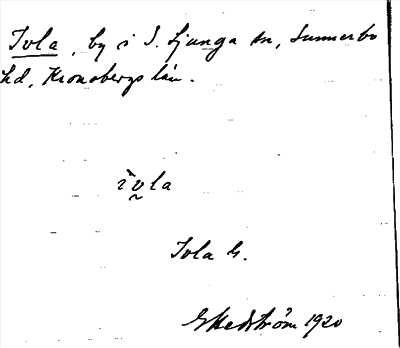 Ivla, by i S. Ljunga sn, Sunnerbo
hd, Kronobergs län.
i̇̀v̰la
Ivla G.
G Hedström 1920